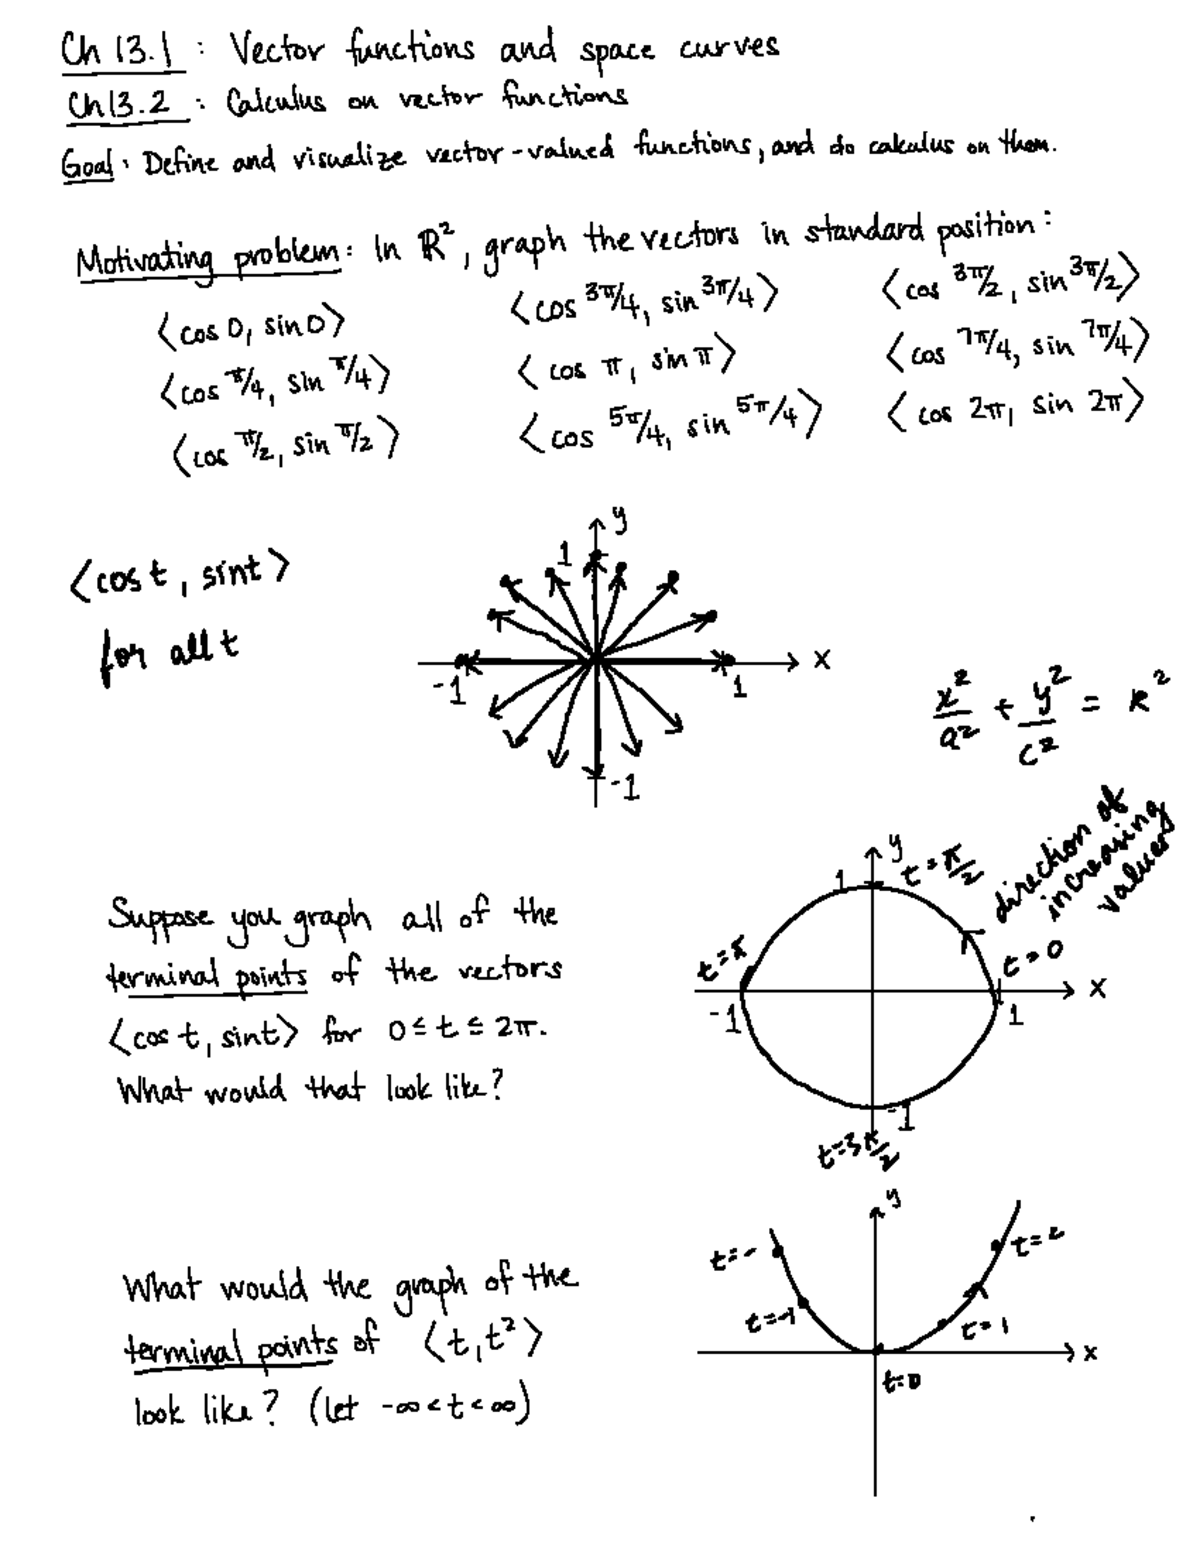 Ch 13.1 : Vector functions and space curves
Ch 13.2 : Calculus on vector functions
Goal: Define and visualize vector-valued functions, and do calculus on them.
Motivating problem: In ℝ², graph the vectors in standard position:
⟨cos 0, sin 0⟩ ⟨cos 3π/4, sin 3π/4⟩ ⟨cos 3π/2, sin 3π/2⟩
⟨cos π/4, sin π/4⟩ ⟨cos π, sin π⟩ ⟨cos 7π/4, sin 7π/4⟩
⟨cos π/2, sin π/2⟩ ⟨cos 5π/4, sin 5π/4⟩ ⟨cos 2π, sin 2π⟩
⟨cos t, sin t⟩
for all t
y
1
x
-1
1
-1
x²/a² + y²/c² = R²
Suppose you graph all of the
terminal points of the vectors
⟨cos t, sin t⟩ for 0 ≤ t ≤ 2π.
What would that look like?
y
1
t = π/2
direction of
increasing
values
t = π
t = 0
x
-1
1
-1
t = 3π/2
What would the graph of the
terminal points of ⟨t, t²⟩
look like? (let -∞ < t < ∞)
y
t=-
t=2
t=-1
t=1
x
t=0